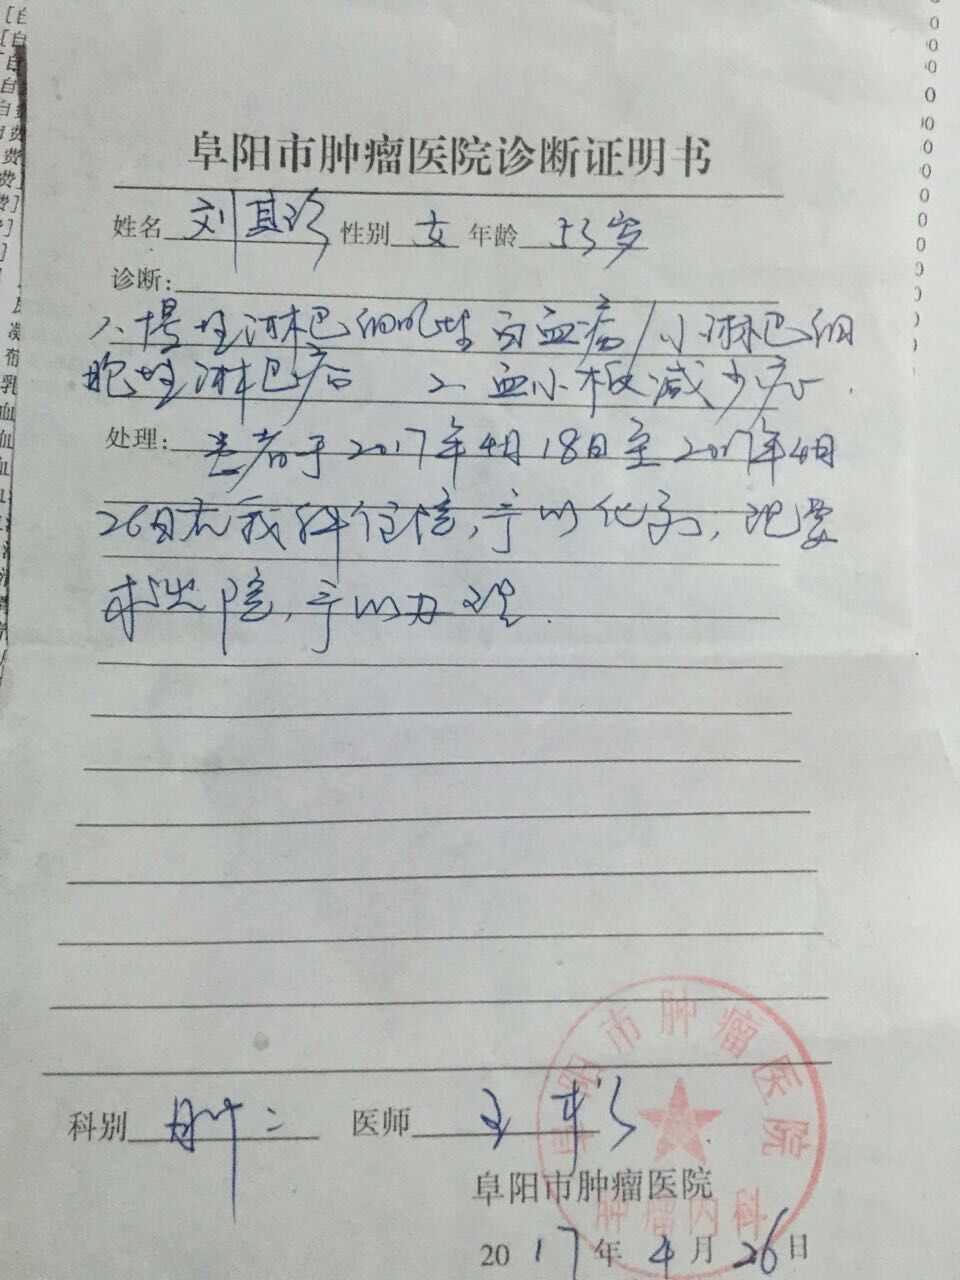 阜阳市肿瘤医院诊断证明书
姓名 刘其珍 性别 女 年龄 53岁
诊断:
1、慢性淋巴细胞性白血病/小淋巴细
胞性淋巴瘤 2、血小板减少症.
处理: 患者于2017年4月18日至2017年4月
26日在我科住院,予以化疗,现要
求出院,予以办理.
科别 肿二 医师 王
阜阳市肿瘤医院
肿瘤内科
阜阳市肿瘤医院
2017年4月26日